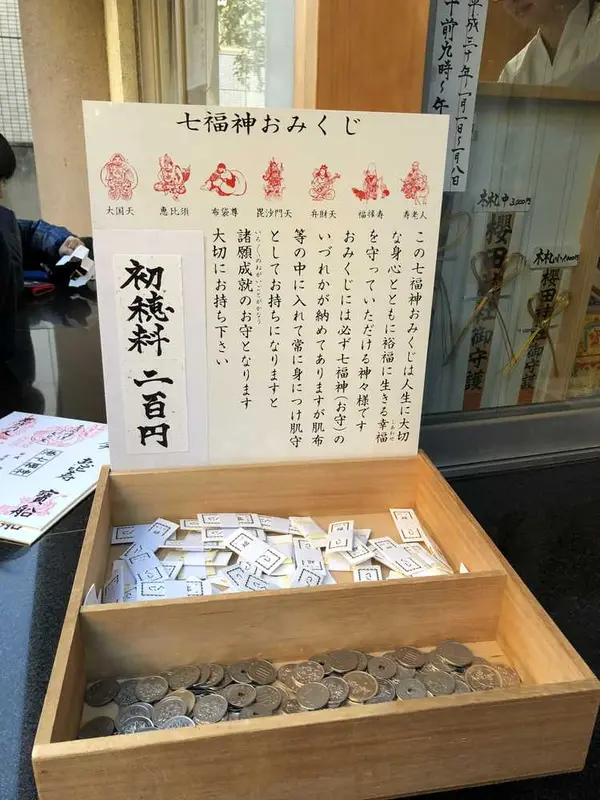 七福神おみくじ
大国天
恵比須
布袋尊
毘沙門天
弁財天
福禄寿
寿老人
この七福神おみくじは人生に大切
な身心とともに裕福に生きる幸福
しあわせ
を守っていただける神々様です
おみくじには必ず七福神(お守)の
いづれかが納めてありますが肌布
等の中に入れて常に身につけ肌守
としてお持ちになりますと
いろいろのねがいごとがかなう
諸願成就のお守となります
大切にお持ち下さい
初穂料 二百円
平成三十年一月一日〜一月八日
午前九時〜午
木札中 3,000円
櫻田神社御守護
木札
御守護
寳船